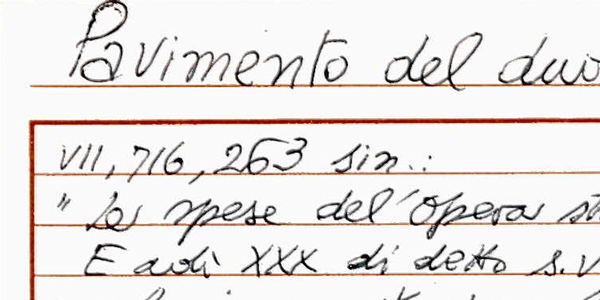 Pavimento del duo
VII, 716, 263 sin.:
" Le spese del'Opera
E adì XXX di detto s.